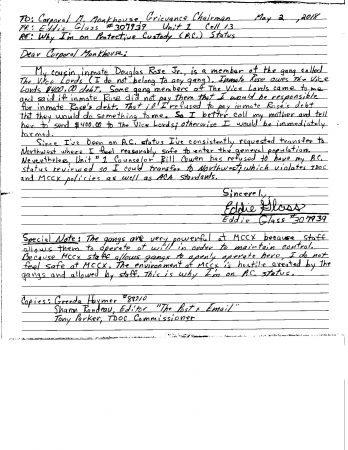 TO: Corporal M. Monkhouse, Grievance Chairman May 2, 2018
FR: Eddie Glass #307939 Unit 1 Cell 13
RE: Why I'm on Protective Custody (P.C.) Status
Dear Corporal Monkhouse:
My cousin inmate Douglas Rose Jr., is a member of the gang called
The Vice Lords (I do not belong to any gang). Inmate Rose owes The Vice
Lords $400.00 debt. Some gang members of The Vice Lords came to me
and said if inmate Rose did not pay them that I would be responsible
for inmate Rose's debt. That if I refused to pay inmate Rose's debt
that they would do something to me. So I better call my mother and tell
her to send $400.00 to The Vice Lords; otherwise I would be immediately
harmed.
Since I've been on P.C. status I've consistently requested transfer to
Northwest where I feel reasonably safe to enter the general population.
Nevertheless, Unit #1 Counselor Bill Cowen has refused to have my P.C.
status reviewed so I could transfer to Northwest; which violates TDOC
and MCCX policies as well as ACA standards.
Sincerely,
Eddie Glass
Eddie Glass #307939
Special Note: The gangs are very powerful at MCCX because staff
allows them to operate at will in order to maintain control.
Because MCCX staff allows gangs to openly operate here, I do not
feel safe at MCCX. The environment at MCCX is hostile created by the
gangs and allowed by staff. This is why I'm on P.C. status.
Copies: Grenda Haymer
Sharon Rondeau, Editor "The Post & Email"
Tony Parker, TDOC Commissioner